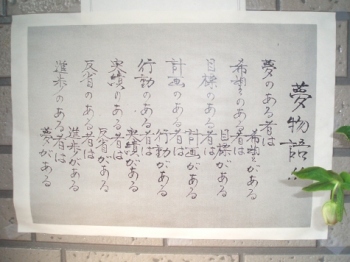 夢物語
夢のある者は
希望がある
希望のある者は
目標がある
目標のある者は
計画がある
計画のある者は
行動がある
行動のある者は
実績がある
実績のある者は
反省がある
反省のある者は
進歩がある
進歩のある者は
夢がある